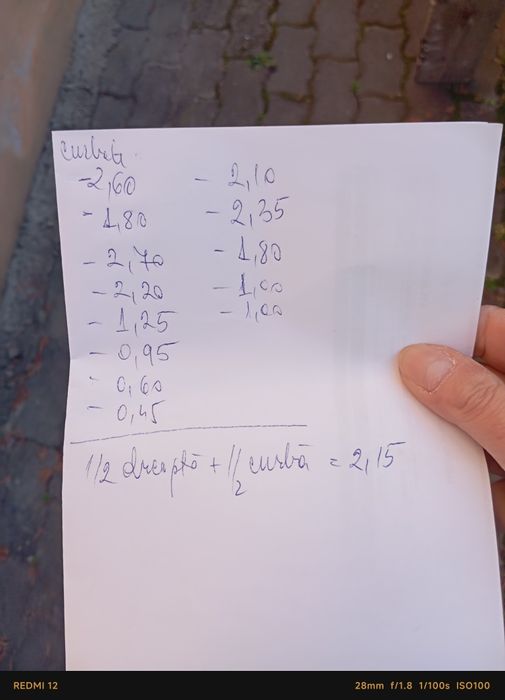 curbate
-2,60
- 1,80
- 2,70
- 2,20
- 1,25
- 0,95
- 0,60
- 0,45
- 2,10
- 2,35
- 1,80
- 1,00
- 1,00
1/2 dreaptă + 1/2 curbă = 2,15
REDMI 12
28mm f/1.8 1/100s ISO100